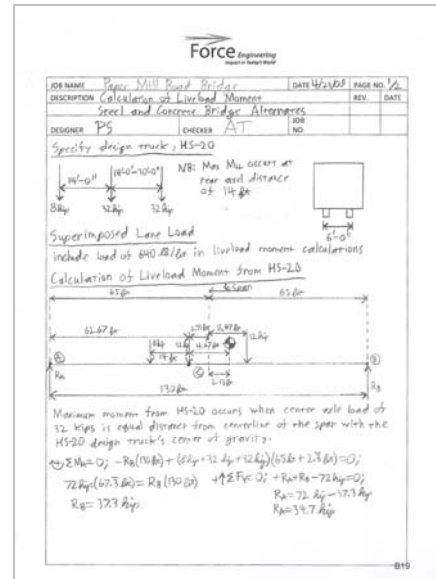 Force Engineering
Impact in Today's World
JOB NAME Paper Mill Road Bridge DATE 4/21/08 PAGE NO. 1/2
DESCRIPTION Calculation of Liveload Moment REV. DATE
Steel and Concrete Bridge Alternates
DESIGNER PS CHECKER AT JOB NO.
Specify design truck, HS-20
14'-0" 14'-0"-30'-0" NB: Max MLL occurs at
rear axel distance
of 14 ft
8kip 32kip 32kip
6'-0"
Superimposed Lane Load
include load of 640 lb/ft in liveload moment calculations
Calculation of Liveload Moment from HS-20
65ft span 65ft
62.67ft 11.67ft
14ft
C 2.33ft
A B
RA 130ft RB
Maximum moment from HS-20 occurs when center axle load of
32 kips is equal distance from centerline of the span with the
HS-20 design truck's center of gravity.
ΣMA=0; -RB(130ft)+(8kip+32kip+32kip)(65ft+2.3ft)=0;
72kip(67.3ft)=RB(130ft) +↑ΣFy=0; +RA+RB-72kip=0;
RB=37.3kip RA=72kip-37.3kip
RA=34.7kip
B19